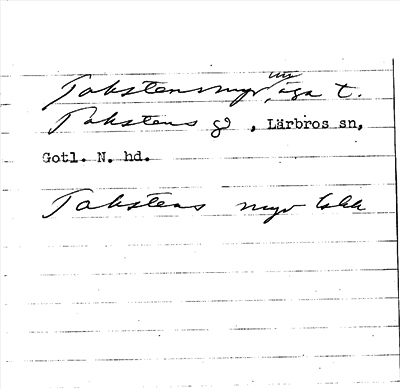 Takstensmyr, äga t.
Takstens gd, Lärbros sn,
Gotl. N. hd.
Takstens myr